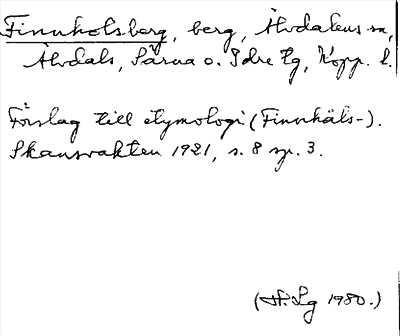 Finnholsberg, berg, Älvdalens sn,
Älvdals, Särna o. Idre tg, Kopp. l.
Förslag till etymologi (Finnhäls-).
Skansvakten 1921, s. 8 sp. 3.
(H. Lg 1980.)